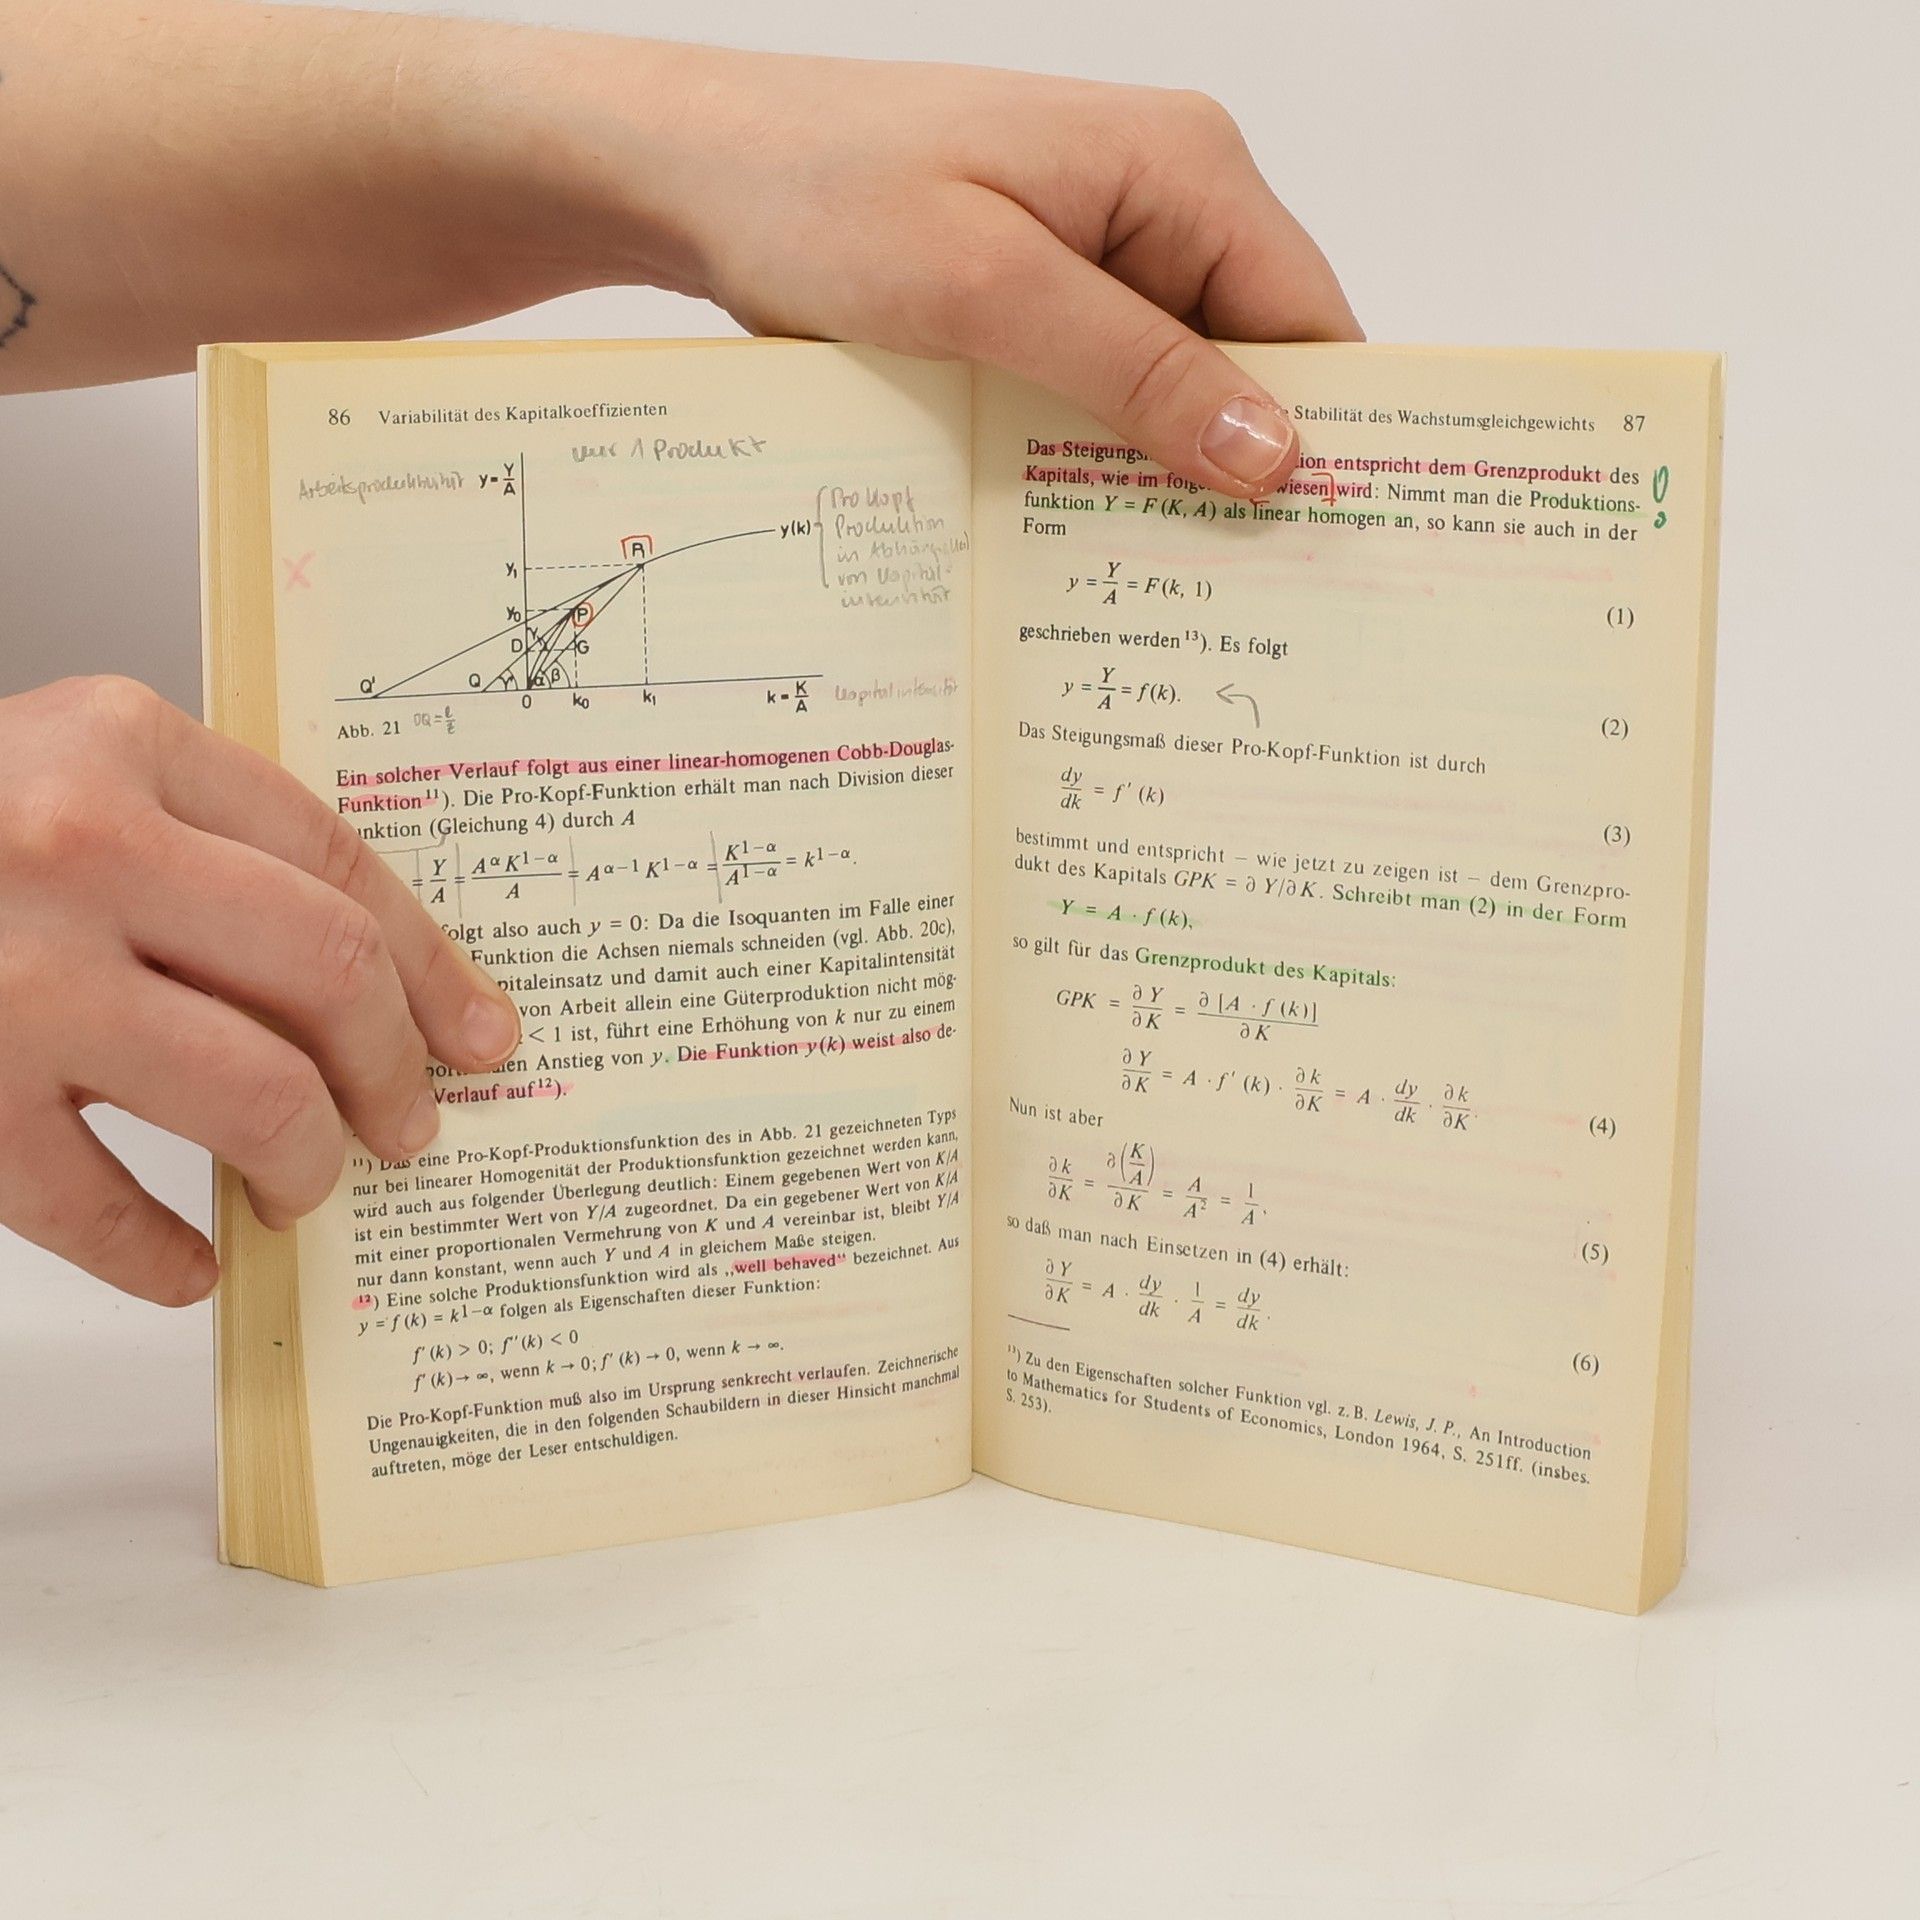 86 Variabilität des Kapitalkoeffizienten
nur 1 Produkt
Arbeitsproduktivität y = Y/A
Pro Kopf
Produktion
in
von Kapital-
intensität
y(k)
P₁
y₁
y₀ P
D γ G
Q' Q γ' α β
0 k₀ k₁ k = K/A Kapitalintensität
Abb. 21 OQ =
Ein solcher Verlauf folgt aus einer linear-homogenen Cobb-Douglas-
Funktion¹¹). Die Pro-Kopf-Funktion erhält man nach Division dieser
nktion (Gleichung 4) durch A
= Y/A = A^α K^(1−α) / A = A^(α−1) K^(1−α) = K^(1−α) / A^(1−α) = k^(1−α).
folgt also auch y = 0: Da die Isoquanten im Falle einer
Funktion die Achsen niemals schneiden (vgl. Abb. 20c),
pitaleinsatz und damit auch einer Kapitalintensität
von Arbeit allein eine Güterproduktion nicht mög-
< 1 ist, führt eine Erhöhung von k nur zu einem
len Anstieg von y. Die Funktion y(k) weist also de-
Verlauf auf¹²).
¹¹) Daß eine Pro-Kopf-Produktionsfunktion des in Abb. 21 gezeichneten Typs
nur bei linearer Homogenität der Produktionsfunktion gezeichnet werden kann,
wird auch aus folgender Überlegung deutlich: Einem gegebenen Wert von K/A
ist ein bestimmter Wert von Y/A zugeordnet. Da ein gegebener Wert von K/A
mit einer proportionalen Vermehrung von K und A vereinbar ist, bleibt Y/A
nur dann konstant, wenn auch Y und A in gleichem Maße steigen.
¹²) Eine solche Produktionsfunktion wird als „well behaved“ bezeichnet. Aus
y = f (k) = k^(1−α) folgen als Eigenschaften dieser Funktion:
f' (k) > 0; f'' (k) < 0
f' (k) → ∞, wenn k → 0; f' (k) → 0, wenn k → ∞.
Die Pro-Kopf-Funktion muß also im Ursprung senkrecht verlaufen. Zeichnerische
Ungenauigkeiten, die in den folgenden Schaubildern in dieser Hinsicht manchmal
auftreten, möge der Leser entschuldigen.
Stabilität des Wachstumsgleichgewichts 87
Das Steigungs tion entspricht dem Grenzprodukt des
Kapitals, wie im folge wiesen wird: Nimmt man die Produktions-
funktion Y = F (K, A) als linear homogen an, so kann sie auch in der
Form
y = Y/A = F (k, 1) (1)
geschrieben werden¹³). Es folgt
y = Y/A = f (k). (2)
Das Steigungsmaß dieser Pro-Kopf-Funktion ist durch
dy/dk = f' (k) (3)
bestimmt und entspricht – wie jetzt zu zeigen ist – dem Grenzpro-
dukt des Kapitals GPK = ∂ Y/∂ K. Schreibt man (2) in der Form
Y = A · f (k),
so gilt für das Grenzprodukt des Kapitals:
GPK = ∂ Y/∂ K = ∂ [A · f (k)]/∂ K
∂ Y/∂ K = A · f' (k) · ∂ k/∂ K = A · dy/dk · ∂ k/∂ K. (4)
Nun ist aber
∂ k/∂ K = ∂ (K/A)/∂ K = A/A² = 1/A, (5)
so daß man nach Einsetzen in (4) erhält:
∂ Y/∂ K = A · dy/dk · 1/A = dy/dk. (6)
¹³) Zu den Eigenschaften solcher Funktion vgl. z. B. Lewis, J. P., An Introduction
to Mathematics for Students of Economics, London 1964, S. 251ff. (insbes.
S. 253).